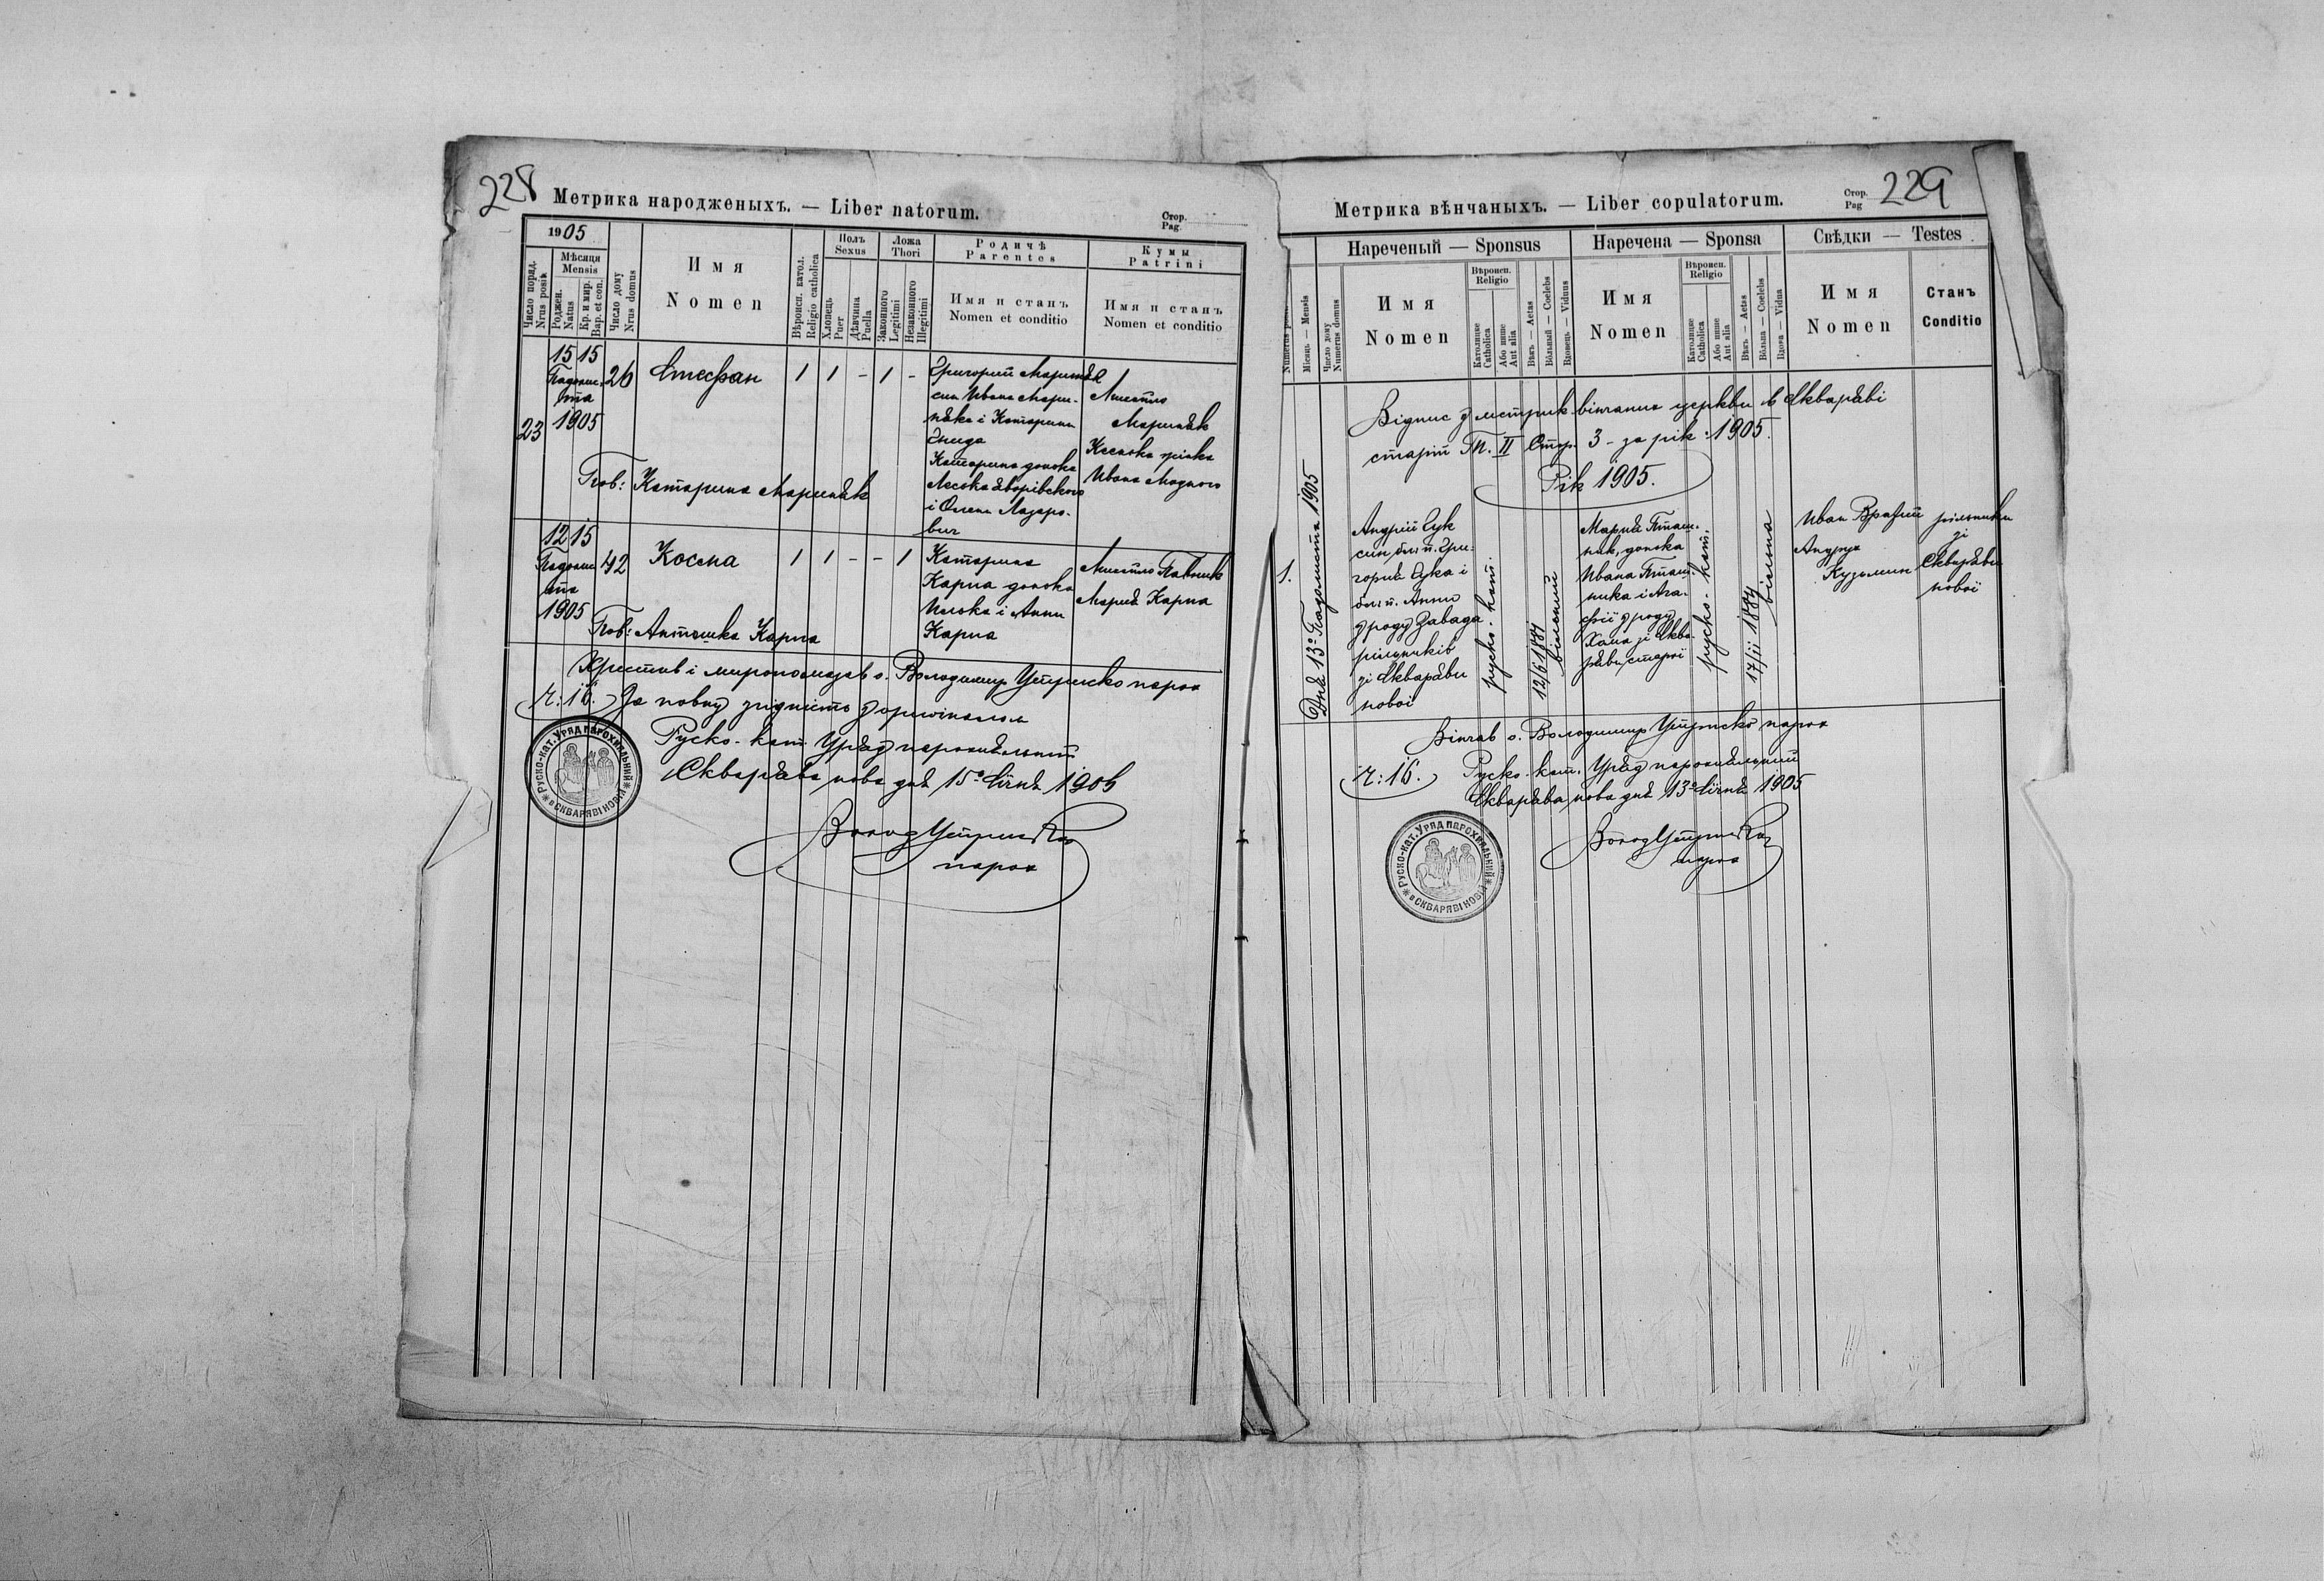 228
Метрика народженыхъ. — Liber natorum.
Стор.
Pag.
1905
Число поряд.
Nrus posik
Мѣсяця
Mensis
Роджен.
Natus
Кр. и мир.
Bap. et con.
Число дому
Nrus domus
Имя
Nomen
Вѣроисп. катол.
Religio catholica
Полъ
Sexus
Хлопець
Puer
Дѣвчина
Puella
Ложа
Thori
Законного
Legitimi
Незаконного
Illegitimi
Родичѣ
Parentes
Имя и станъ
Nomen et conditio
Кумы
Patrini
Имя и станъ
Nomen et conditio
23
15 15
Падолис
та
1905
26
Стефан
1 1 - 1 -
Григорий Мариняк
син Ивана Мари-
няка і Катарини
Катарина донька
Леська Яворівского
і Олени Лазаро-
вич
Мариняк
Ивана Модного
Пов: Катарина Мариняк
12 15
Падолис
та
1905
42
Косма
1 1 - - 1
Катарина
Карпа донька
Илька і Анни
Карпа
Мария Карпа
Пов: Карпа
Христив і миропомазав о. Володимир Устриско парох
Ч: 16. За повну згідність з оригіналом
Руско-кат. Уряд парохіяльний
Скварява нова дня 15º Січня 1906
Волод Устриско
парох
РУСКО-КАТ. УРЯД ПАРОХІАЛЬНИЙ
в СКВАРЯВІ НОВІЙ
Метрика вѣнчаныхъ. — Liber copulatorum.
Стор.
Pag
229
Мѣсяць — Mensis
Число дому
Numerus domus
Нареченый — Sponsus
Имя
Nomen
Вѣроисп.
Religio
Католицке
Catholica
Або инше
Aut alia
Вѣкъ — Aetas
Вôльный — Coelebs
Вдовець — Viduus
Наречена — Sponsa
Имя
Nomen
Вѣроисп.
Religio
Католицке
Catholica
Або инше
Aut alia
Вѣкъ — Aetas
Вôльна — Coelebs
Вдова — Vidua
Свѣдки — Testes
Имя
Nomen
Станъ
Conditio
Відпис з метрик вінчаних церкви в Скваряві
старій Т. II Стор. 3 - за рік: 1905.
Рік 1905.
1.
Дня 13º Падолиста 1905
Андрій Цук
син бл. п. Гри-
гория Цука і
бл. п. Анни
з роду Завада
рільників
зі Скваряви
нової
руско-кат.
12/6 1884
вільний
Мария Пташ-
ник, донька
Ивана Пташ-
ника і Ага-
фії з роду
Хома зі Сква-
ряви старої
руско-кат.
17/11 1884
вільна
Иван
Андрух
Кузьмин
рільники
зі
Скваряви
нової
Вінчав о. Володимир Устриско парох
Ч: 16. Руско-кат. Уряд парохіяльний
Скварява нова дня 13º Січня 1905
Волод Устриско
парох
РУСКО-КАТ. УРЯД ПАРОХІАЛЬНИЙ
в СКВАРЯВІ НОВІЙ